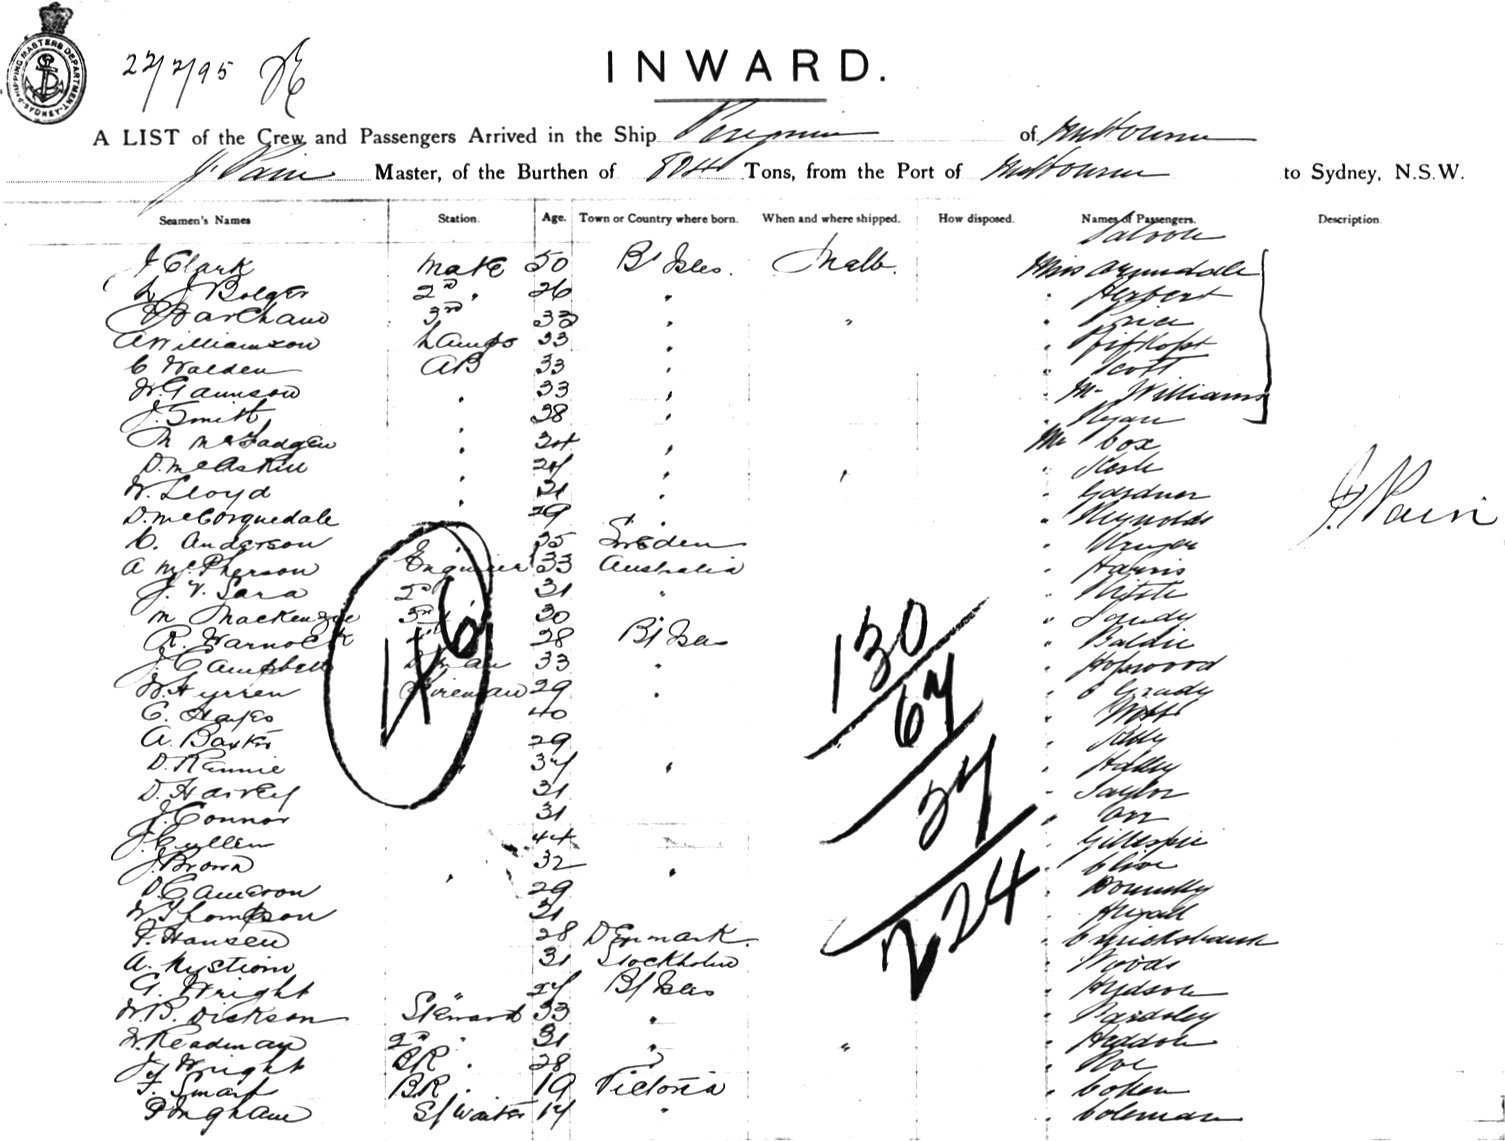 SHIPPING MASTERS DEPARTMENT SYDNEY
22/2/95
INWARD.
A LIST of the Crew and Passengers Arrived in the Ship of Melbourne
J. Pain Master, of the Burthen of Tons, from the Port of Melbourne to Sydney, N.S.W.
Seamen's Names Station. Age. Town or Country where born. When and where shipped. How disposed. Names of Passengers. Description.
Saloon
J Clark Mate 50 Bt Isles. Melb. Miss
J Bolger 2nd " 26 " " Herbert
3rd 33 " " " Price
A Williamson Lamps 33 " "
C Walden AB 33 " " Scott
W. Gaunson " 33 " " Mc Williams
J. Smith " 38 " " Ryan
M McFadgen " 34 " Mr Cox
D. McAskill " 24 " "
W. Lloyd " 21 " " Gardner
D. McCorquedale " 29 " " Reynolds
C. Anderson 35 Sweden " Kruger
A McPherson Engineer 33 Australia " Harris
J. V. Sara 2nd 31 " "
M Mackenzie 3rd 30 "
R. Warnock 28 Bt Isles "
J. Campbell D man 33 " " Hopwood
Fireman 29 " " O Grady
C. Hayes 40 "
A. Baxter 29 "
D. Rennie 34 " "
D. Harvey 31 " Taylor
J. Connor 31 " Orr
J. Cullen 44 " Gillespie
J. Brown 32 " " Clive
D Cameron " 29 " Donnelly
W Thompson 31 "
Hansen 28 Denmark. " Cruickshank
A. Nystrom 31 Stockholm " Woods
G. Wright 24 Bt Isles " Hudson
W. B. Dickson Steward 33 " " Pardsley
W. Readman 2nd " 31 " " "
Wright BR " 28 " " Roe
F. Smart BR. " 19 Victoria " Cohen
Bingham S/Waiter 14 " " Coleman
J. Pain
46
130
64
34
224